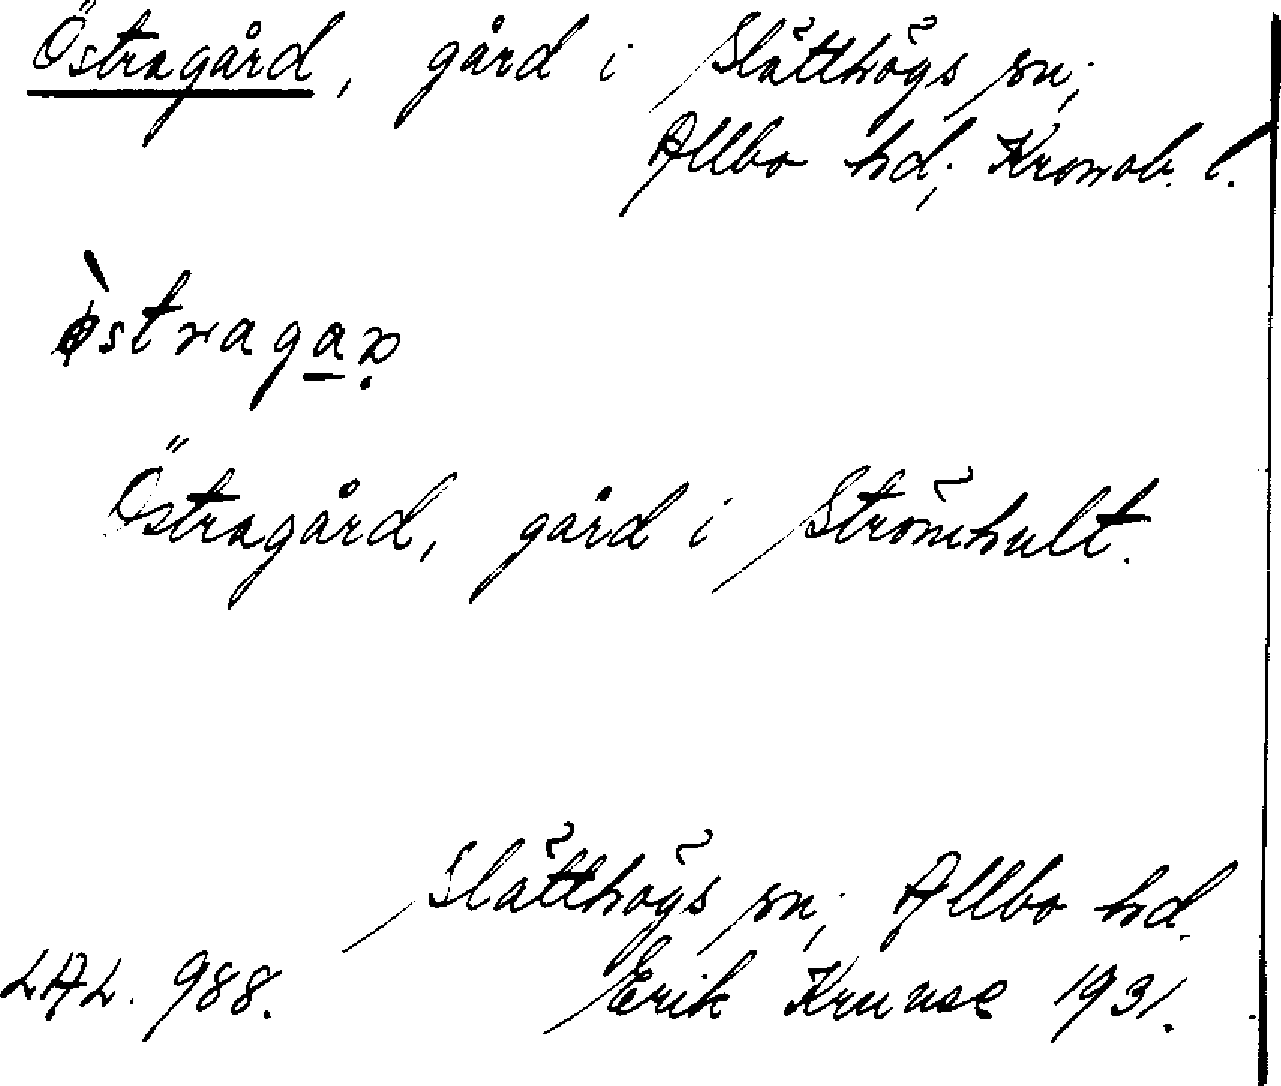 Östragård, gård i Slätthögs sn;
Allbo hd; Kronob. l.
östraga̲ṛ
Östragård, gård i Strömhult.
Slätthögs sn; Allbo hd.
LAL. 988. Erik Kruuse 1931.